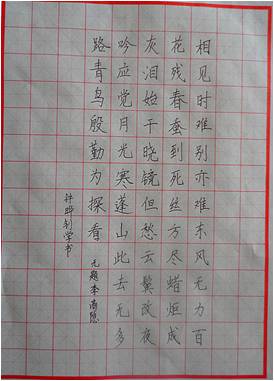 相见时难别亦难东风无力百
花残春蚕到死丝方尽蜡炬成
灰泪始干晓镜但愁云鬓改夜
吟应觉月光寒蓬山此去无多
路青鸟殷勤为探看 无题李商隐
学书